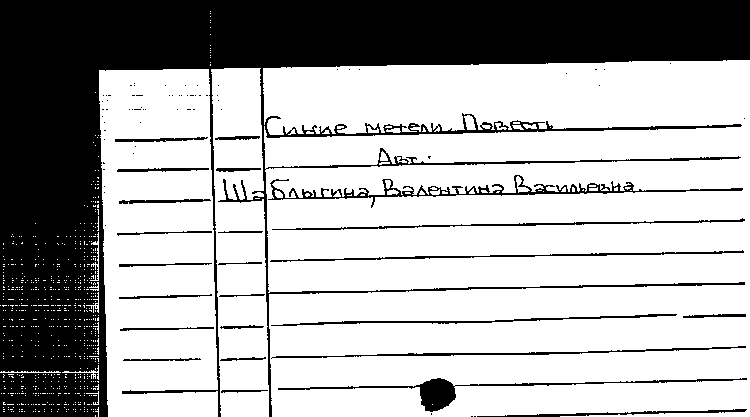 Синие метели. Повесть
Авт.:
Шаблыгина, Валентина Васильевна.